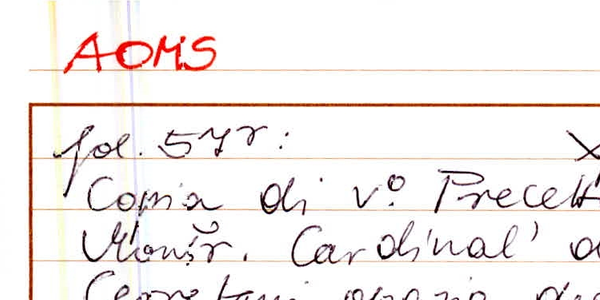 AOMS
fol. 57r:
Copia di v.º Precett
Monsr. Cardinal' d